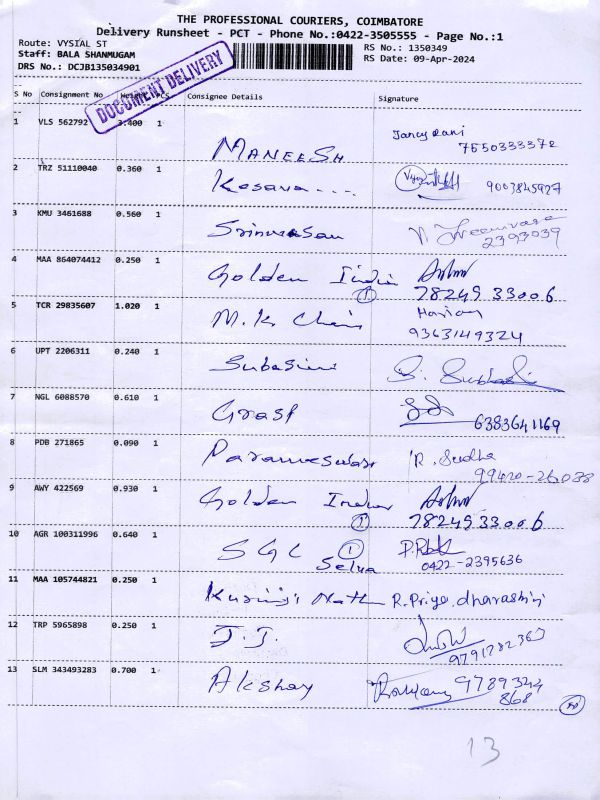 THE PROFESSIONAL COURIERS, COIMBATORE
Delivery Runsheet - PCT - Phone No.:0422-3505555 - Page No.:1
Route: VYSIAL ST
Staff: BALA SHANMUGAM
DRS No.: DCJB135034901
RS No.: 1350349
RS Date: 09-Apr-2024
DOCUMENT DELIVERY
S No Consignment No Weight PCS Consignee Details Signature
1 VLS 562792 3.400 1 MANEESH
7550333372
2 TRZ 51110040 0.360 1 Kesava.... 9003845927
3 KMU 3461688 0.560 1 Srinivasan
2393039
4 MAA 864074412 0.250 1 Golden India
1 78249 33006
5 TCR 29835607 1.020 1 M.K. Chain
9363149324
6 UPT 2206311 0.240 1 Subasini
7 NGL 6088570 0.610 1 Grasp 6383641169
8 PDB 271865 0.090 1 Parameswari R. Sudha
99420-26038
9 AWY 422569 0.930 1 Golden India
1 78249 33006
10 AGR 100311996 0.640 1 SGC 1
Selva 0422-2395636
11 MAA 105744821 0.250 1 Nath R. Priya dharashini
12 TRP 5965898 0.250 1 J.J.
13 SLM 343493283 0.700 1 Akshay 9789344
868
13